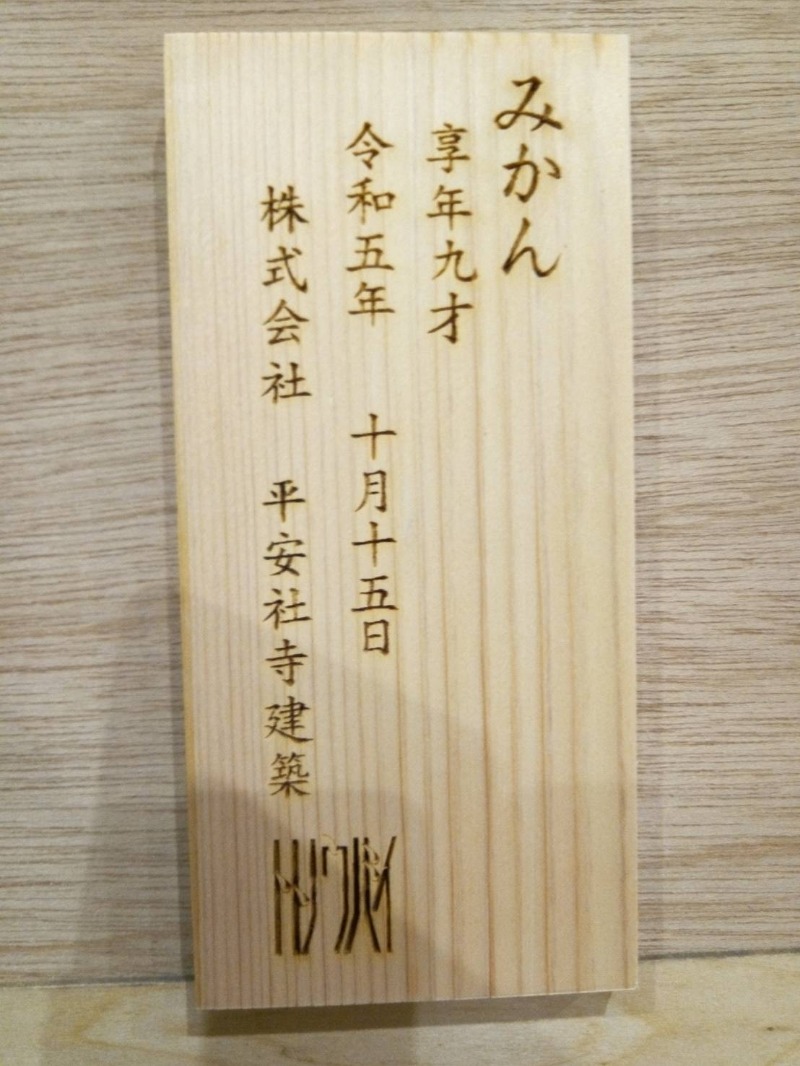 みかん
享年九才
令和五年 十月十五日
株式会社 平安社寺建築